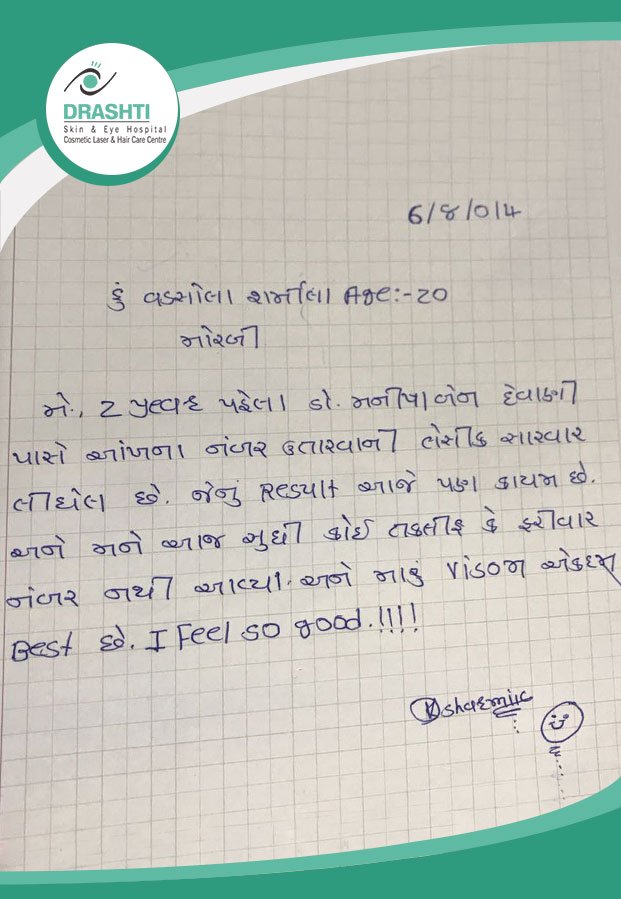 DRASHTI
Skin & Eye Hospital
Cosmetic Laser & Hair Care Centre
6/8/014
હું વડસોલા શર્મીલા Age:-20
મોરબી
મેં., 2 year પહેલા ડો. મનીષાબેન દેવાણી
પાસે આંખના નંબર ઉતારવાની લેસીક સારવાર
લીધેલ છે. જેનું Result આજે પણ કાયમ છે.
અને મને આજ સુધી કોઈ તકલીફ કે ફરીવાર
નંબર નથી આવ્યા. અને મારૂ Vision એકદમ
Best છે. I Feel so good.!!!!